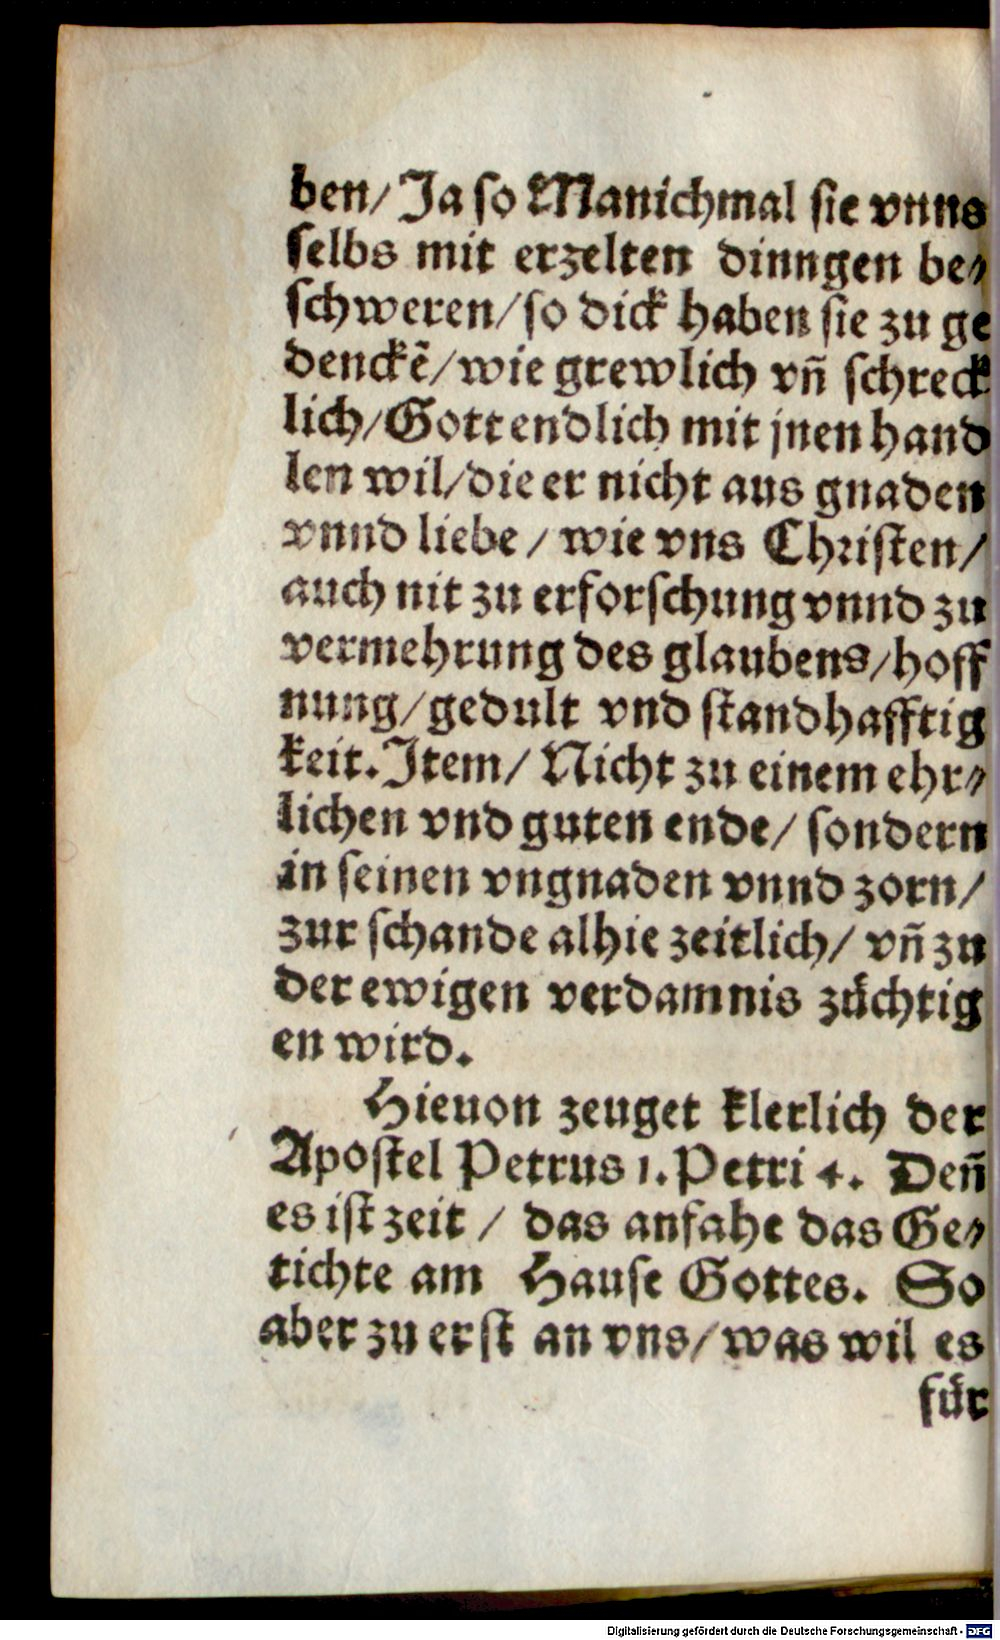 ben/ Ja so Manichmal sie vnns
selbs mit erzelten dinngen be-
schweren/ so dick haben sie zu ge
denckẽ/ wie grewlich vñ schreck
lich/ Gott endlich mit jnen hand
len wil/ die er nicht aus gnaden
vnnd liebe / wie vns Christen/
auch nit zu erforschung vnnd zu
vermehrung des glaubens/ hoff
nung/ gedult vnd standhafftig
keit. Item/ Nicht zu einem ehr-
lichen vnd guten ende/ sondern
in seinen vngnaden vnnd zorn/
zur schande alhie zeitlich/ vñ zu
der ewigen verdamnis züchtig
en wird.
Hieuon zeuget klerlich der
Apostel Petrus 1. Petri 4. Deñ
es ist zeit / das anfahe das Ge-
richte am Hause Gottes. So
aber zu erst an vns/ was wil es
für
Digitalisierung gefördert durch die Deutsche Forschungsgemeinschaft - DFG